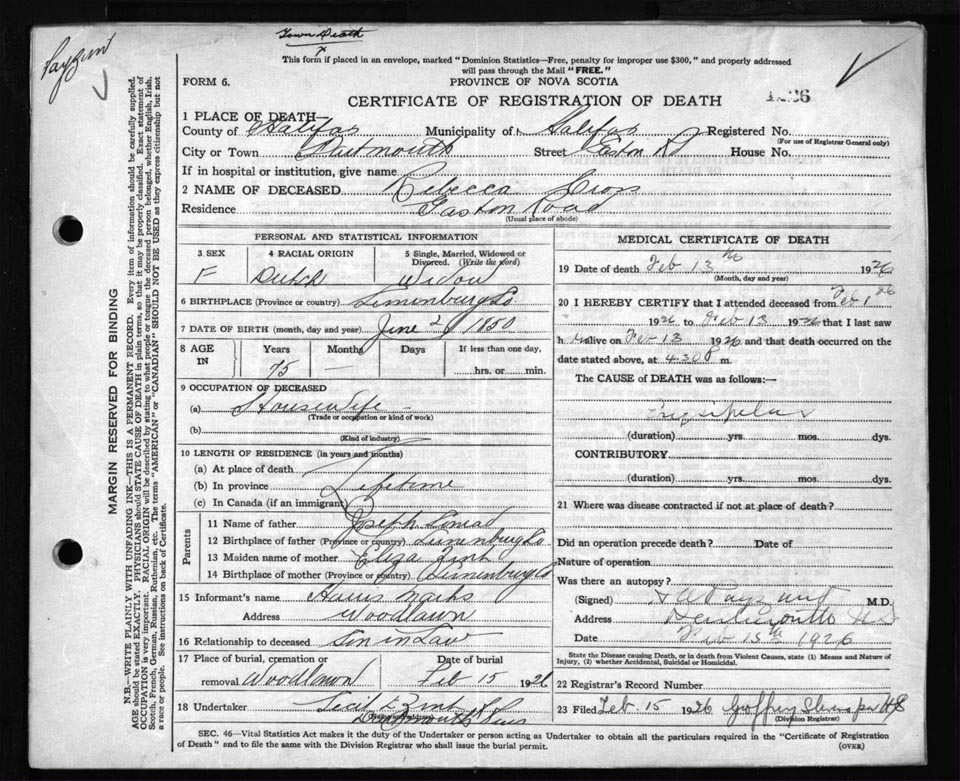 Town Death
This form if placed in an envelope, marked "Dominion Statistics—Free, penalty for improper use $300," and properly addressed
will pass through the Mail "FREE."
FORM 6.
PROVINCE OF NOVA SCOTIA
CERTIFICATE OF REGISTRATION OF DEATH
1 PLACE OF DEATH—
County of Halifax Municipality of Halifax Registered No.
(For use of Registrar General only)
City or Town Dartmouth Street Gaston Rd House No.
If in hospital or institution, give name
2 NAME OF DECEASED Rebecca
Residence Gaston Road
(Usual place of abode)
PERSONAL AND STATISTICAL INFORMATION
3 SEX 4 RACIAL ORIGIN 5 Single, Married, Widowed or Divorced. (Write the word)
F Dutch Widow
6 BIRTHPLACE (Province or country) Lunenburg Co
7 DATE OF BIRTH (month, day and year) June 1850
8 AGE IN Years Months Days If less than one day,
75 — hrs. or min.
9 OCCUPATION OF DECEASED
(a) Housewife
(Trade or occupation or kind of work)
(b)
(Kind of industry)
10 LENGTH OF RESIDENCE (in years and months)
(a) At place of death
(b) In province Lifetime
(c) In Canada (if an immigrant)
Parents
11 Name of father Joseph Conrad
12 Birthplace of father (Province or country) Lunenburg Co
13 Maiden name of mother Eliza Zink
14 Birthplace of mother (Province or country) Lunenburg Co
15 Informant's name Harris Marks
Address Woodlawn
16 Relationship to deceased Son in Law
17 Place of burial, cremation or removal Woodlawn Date of burial Feb 15 1926
18 Undertaker Cecil E Zink
Dartmouth
MEDICAL CERTIFICATE OF DEATH
19 Date of death Feb 13th 1926
(Month, day and year)
20 I HEREBY CERTIFY that I attended deceased from Feb 1st
1926 to Feb 13 1926 that I last saw
h er alive on Feb 13 1926 and that death occurred on the
date stated above, at 4:30 P m.
The CAUSE of DEATH was as follows:—
Erysipelas
(duration) yrs. mos. dys.
CONTRIBUTORY
(duration) yrs. mos. dys.
21 Where was disease contracted if not at place of death?
Did an operation precede death? Date of
Nature of operation
Was there an autopsy?
(Signed) Payzant M.D.
Address Dartmouth N S
Date Feb 15th 1926
State the Disease causing Death, or in death from Violent Causes, state (1) Means and Nature of
Injury, (2) whether Accidental, Suicidal or Homicidal.
22 Registrar's Record Number
23 Filed Feb 15 1926 Goffrey Stevens per
(Division Registrar)
SEC. 46—Vital Statistics Act makes it the duty of the Undertaker or person acting as Undertaker to obtain all the particulars required in the "Certificate of Registration
of Death" and to file the same with the Division Registrar who shall issue the burial permit.
(OVER)
MARGIN RESERVED FOR BINDING
N.B.—WRITE PLAINLY WITH UNFADING INK—THIS IS A PERMANENT RECORD. Every item of information should be carefully supplied.
AGE should be stated EXACTLY. PHYSICIANS should STATE CAUSE OF DEATH in plain terms, so that it may be properly classified. Exact statement of
OCCUPATION is very important. RACIAL ORIGIN will be described by stating to what people or tongue the deceased person belonged, whether English, Irish,
Scotch, French, German, Russian, Ruthenian, etc. The terms "AMERICAN" or "CANADIAN" SHOULD NOT BE USED as they express citizenship but not
a race or people. See instructions on back of Certificate.